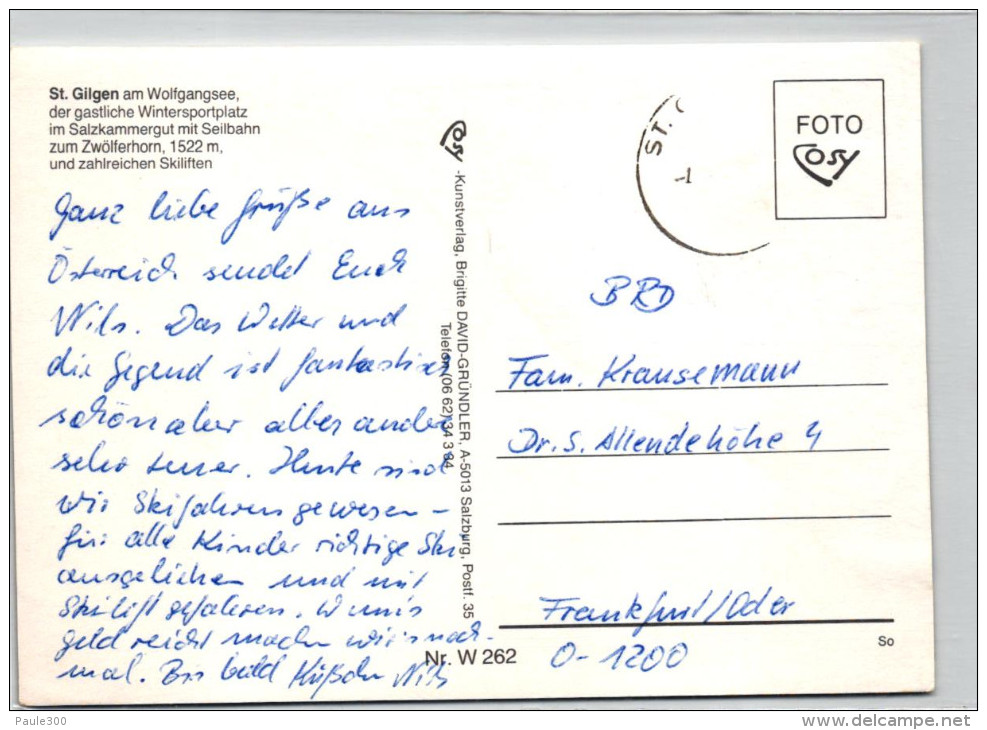 St. Gilgen am Wolfgangsee,
der gastliche Wintersportplatz
im Salzkammergut mit Seilbahn
zum Zwölferhorn, 1522 m,
und zahlreichen Skiliften
Ganz liebe Grüße aus
Österreich sendet Euch
Nils. Das Wetter und
die Gegend ist fantastisch
schön aber alles andere
sehr teuer. Heute sind
wir Skifahren gewesen –
für alle Kinder richtige Ski
ausgeliehen und mit
Skilift gefahren. Wenns
geld reicht machen wir's noch-
mal. Bis bald Küßchen Nils
Cosy
-Kunstverlag, Brigitte DAVID-GRÜNDLER, A-5013 Salzburg, Postf. 35
Telefon (06 62) 34 3 04
Nr. W 262
ST.
FOTO
Cosy
BRD
Fam. Krausemann
Dr. S. Allendehöhe 4
Frankfurt/Oder
O-1200
So
Paule300
www.delcampe.net